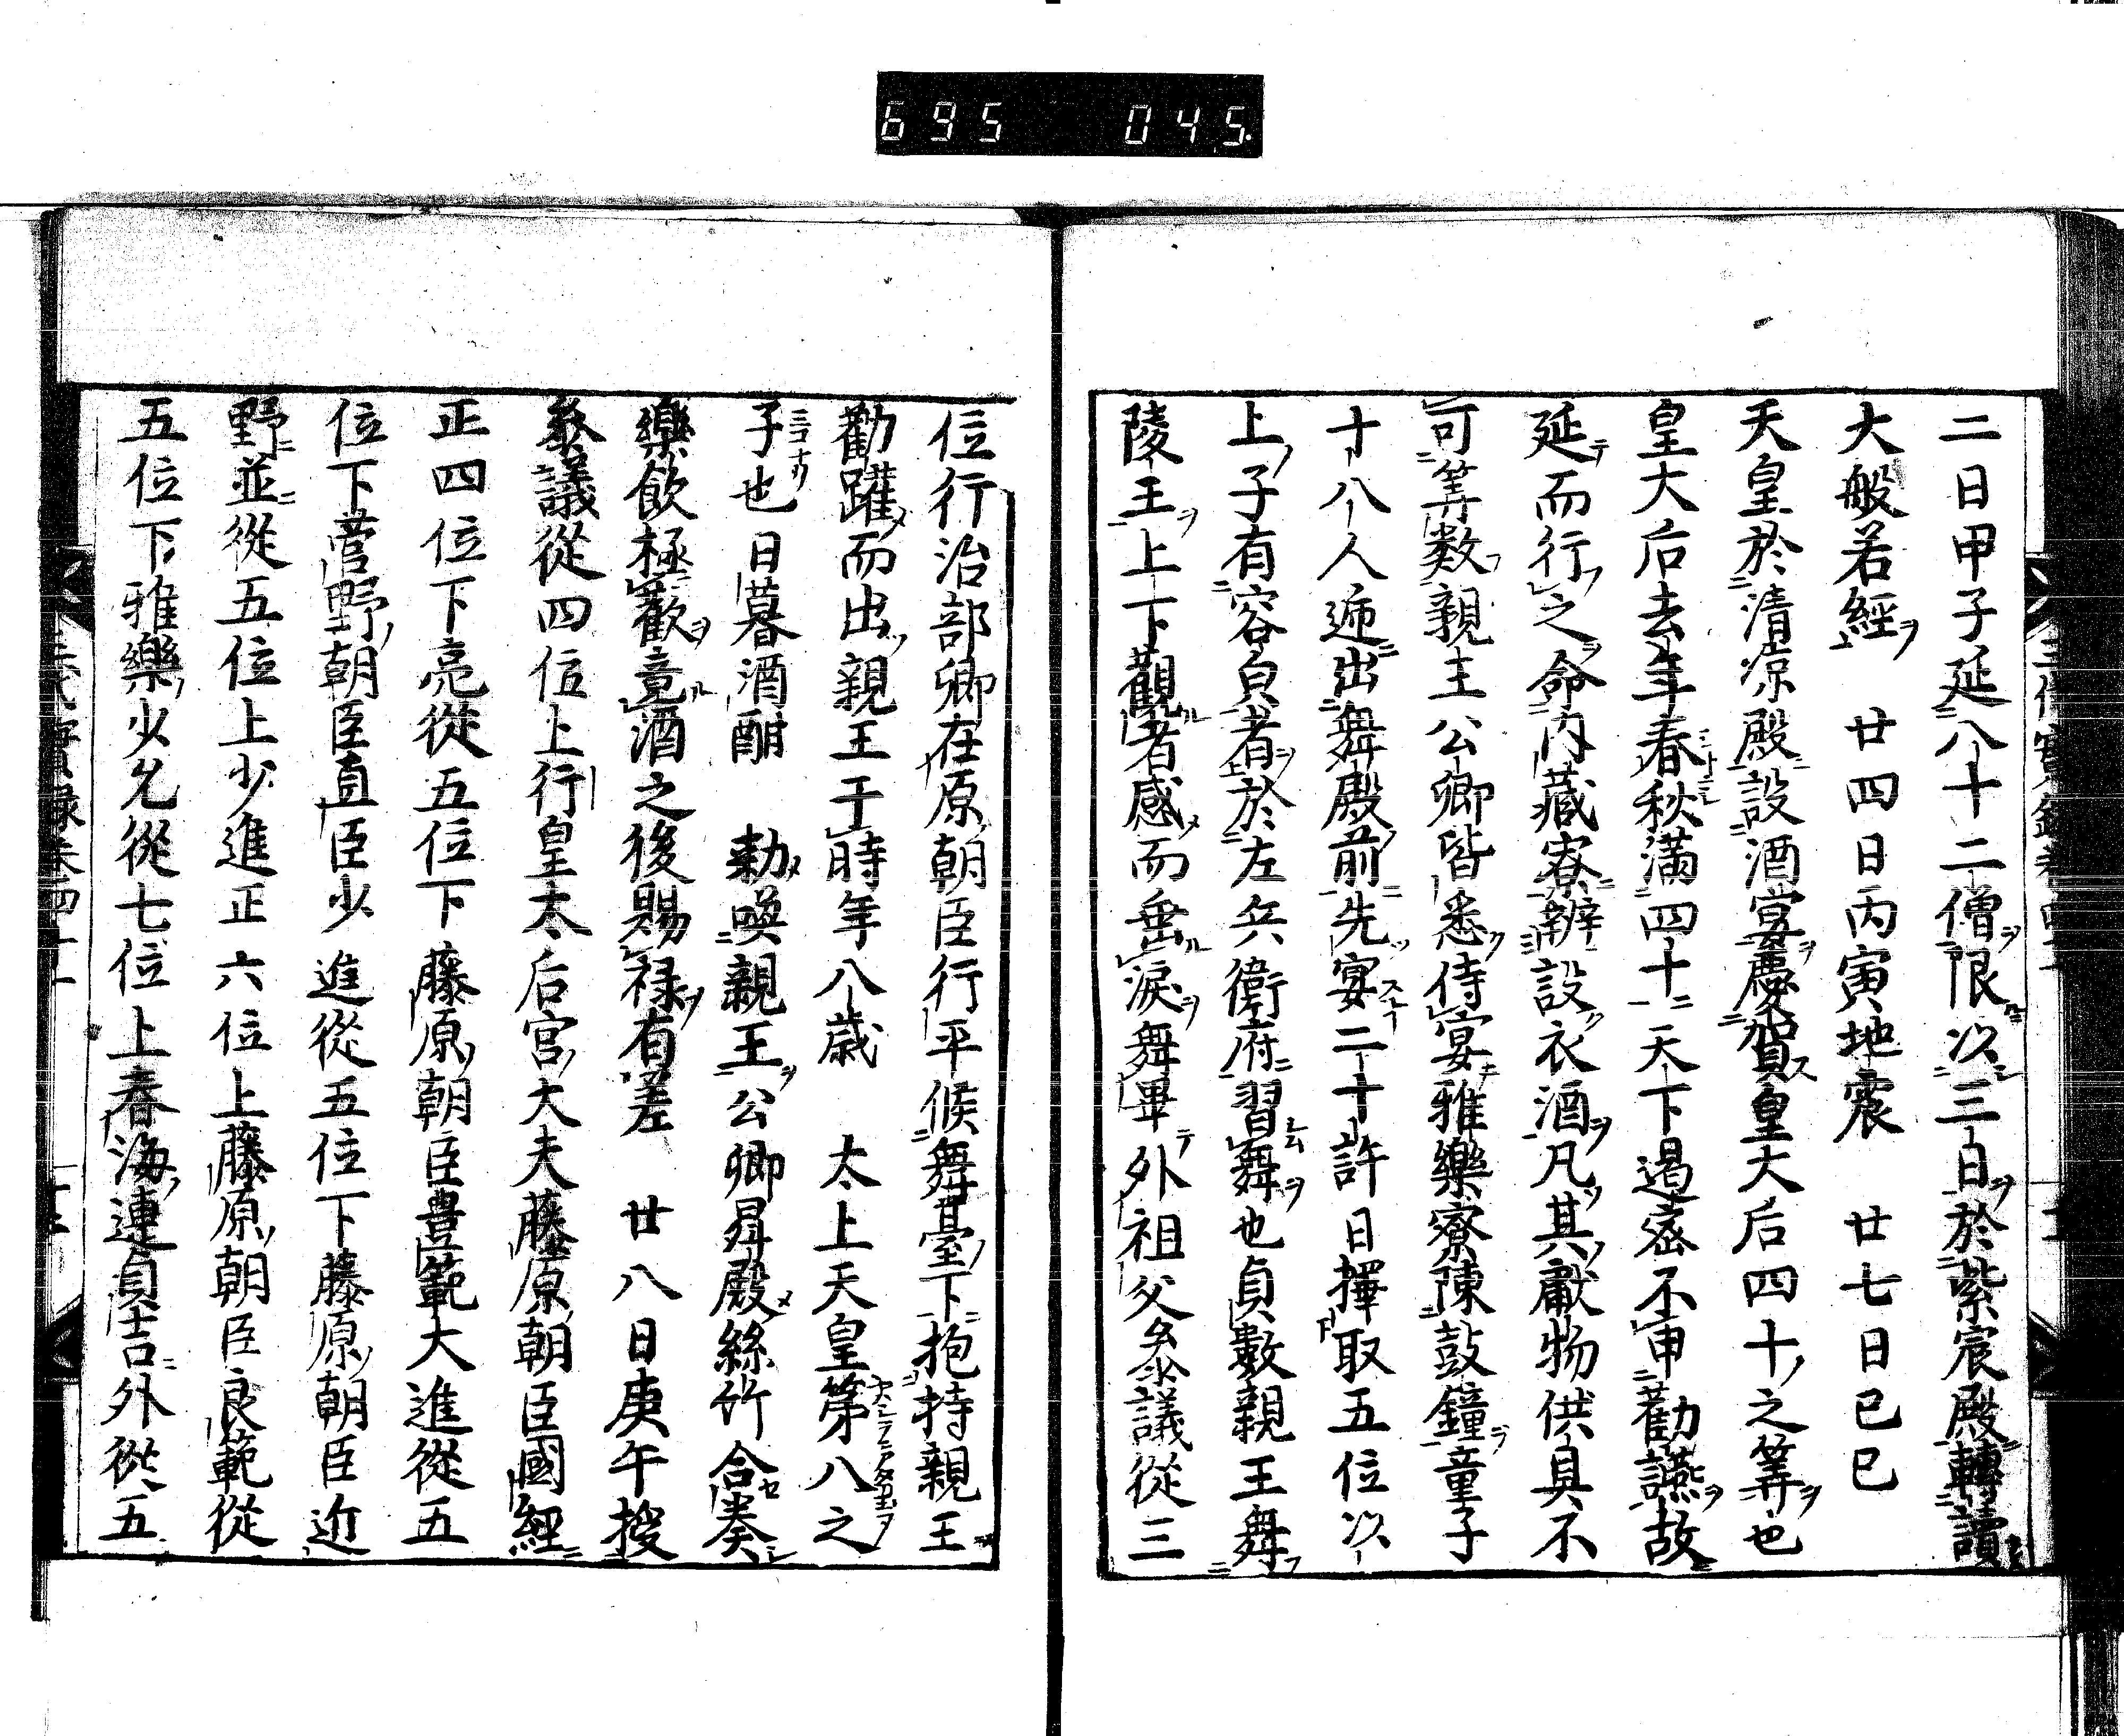 695 045.
二日甲子延八十二僧限以三日於紫宸殿轉讀
大般若經 廿四日丙寅地震 廿七日己巳
天皇於清凉殿設酒宴慶賀皇大后四十之筭也
皇大后去年春秋滿四十天下遏密不申勸讌故
延而行之命内藏寮辨設衣酒凡其獻物供具不
可筭数親王公卿皆悉侍宴雅樂寮陳鼓鐘童子
十八人遞出舞殿前先宴二十許日擇取五位以
上子有容皃者於左兵衛府習舞也貞數親王舞
陵王上下觀者感而垂淚舞畢外祖父參議從三
位行治部卿在原朝臣行平候舞臺下抱持親王
勸躍而出親王于時年八歳 太上天皇第八之
子也日暮酒酣 勅喚親王公卿昇殿絲竹合奏
樂飲極歡竟酒之後賜禄有差 廿八日庚午授
叅議從四位上行皇太后宮大夫藤原朝臣國經
正四位下亮從五位下藤原朝臣豊範大進從五
位下菅野朝臣直臣少進從五位下藤原朝臣近
野並從五位上少進正六位上藤原朝臣良範從
五位下雅樂少允從七位上春海連貞吉外從五